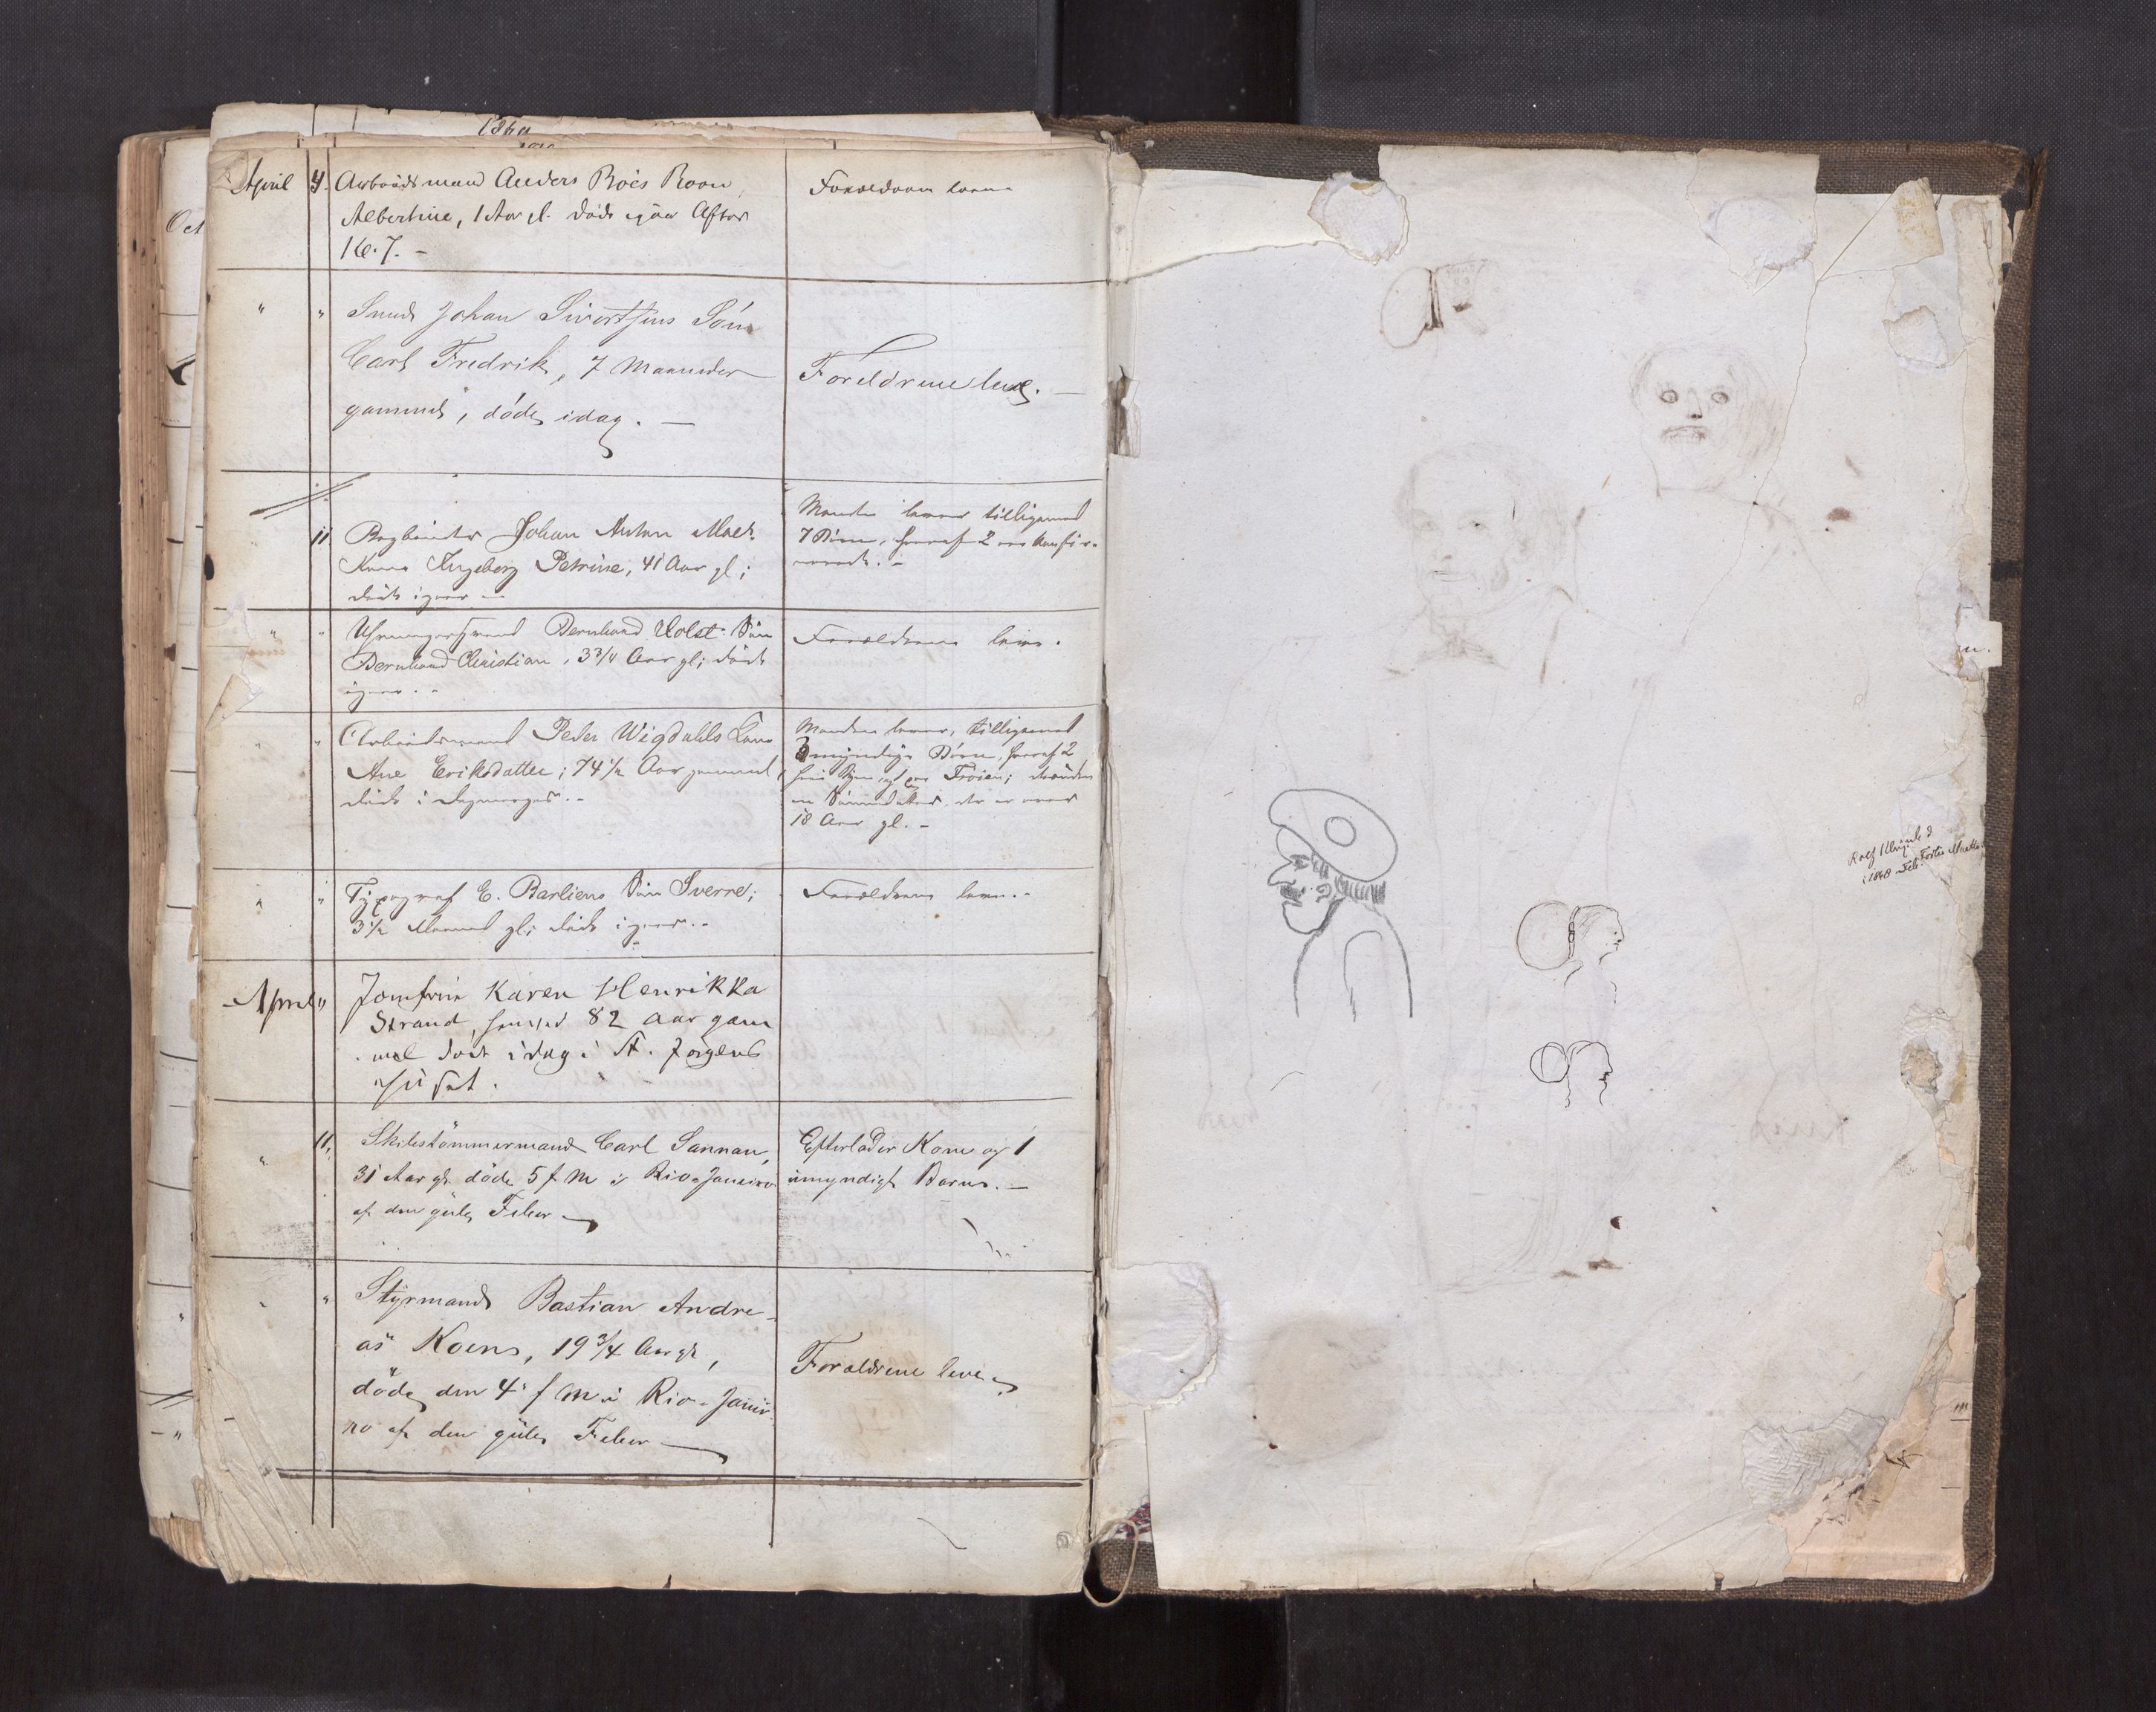 1860
Oct
April 4. Arbeidsmand Anders Roés Barn,
Albertine, 1 Aar gl. døde igaar Efter
Kl. 7. -
Forældrene leve
" " Smed Johan Sivertsens Sön
Carl Fredrik, 7 Maaneder
gammel, døde idag. —
Foreldrene leve. —
11 Bogbinder Johan Anton
Kone Ingeborg Petrine, 41 Aar gl;
døde igaar —
Manden lever tilligemed
7 Börn, hvoraf 2 ere konfir-
merede. -
" " Uhrmagersvend Bernhard Holst. Sön
Bernhard Christian, 3 3/4 Aar gl; døde
igaar. -
Forældrene leve.
" " Arbeidsmand Peder Wigdahls Kone
Ane Eriksdatter; 74 1/2 Aar gammel,
døde i Dagmorges. -
Manden lever, tilligemed
3 myndige Börn, hvoraf 2
Frøien; desuden
en Sönnedatter, der er over
18 Aar gl. -
" " Typograf E. Barliens Sön Sverre;
3 1/2 Maaned gl; døde igaar. -
Forældrene leve. -
April " Jomfrue Karen Henrikka
Strand, 82 Aar gam
mel døde idag i St. Jørgens
Huset.
" 11. Skibstömmermand Carl Sannan,
31 Aar gl. döde 5 f M i Rio-Janeiro
af den gule Feber
Efterlader Kone og 1
umyndigt Barn. —
" " Styrmand Bastian Andre-
as Koens, 19 3/4 Aar gl,
döde den 4' f M i Rio-Janei-
ro af den gule Feber
Forældrene leve
Rolf
i 1848